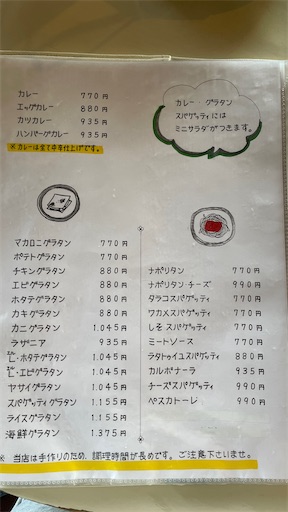 カレー 770円
エッグカレー 880円
カツカレー 935円
ハンバーグカレー 935円
※カレーは全て中辛仕上げです。
カレー・グラタン
スパゲッティには
ミニサラダがつきます。
マカロニグラタン 770円
ポテトグラタン 770円
チキングラタン 880円
エビグラタン 880円
ホタテグラタン 880円
カキグラタン 880円
カニグラタン 1.045円
ラザニア 935円
L・ホタテグラタン 1.045円
L・エビグラタン 1.045円
ヤサイグラタン 1.045円
スパゲッティグラタン 1.155円
ライスグラタン 1.155円
海鮮グラタン 1.375円
ナポリタン 770円
ナポリタン チーズ 990円
タラコスパゲッティ 770円
ワカメスパゲッティ 770円
しそスパゲッティ 770円
ミートソース 770円
ラタトゥイユスパゲッティ 880円
カルボナーラ 935円
チーズスパゲッティ 990円
ペスカトーレ 990円
※ 当店は手作りのため、調理時間が長めです。ご注意下さいませ。